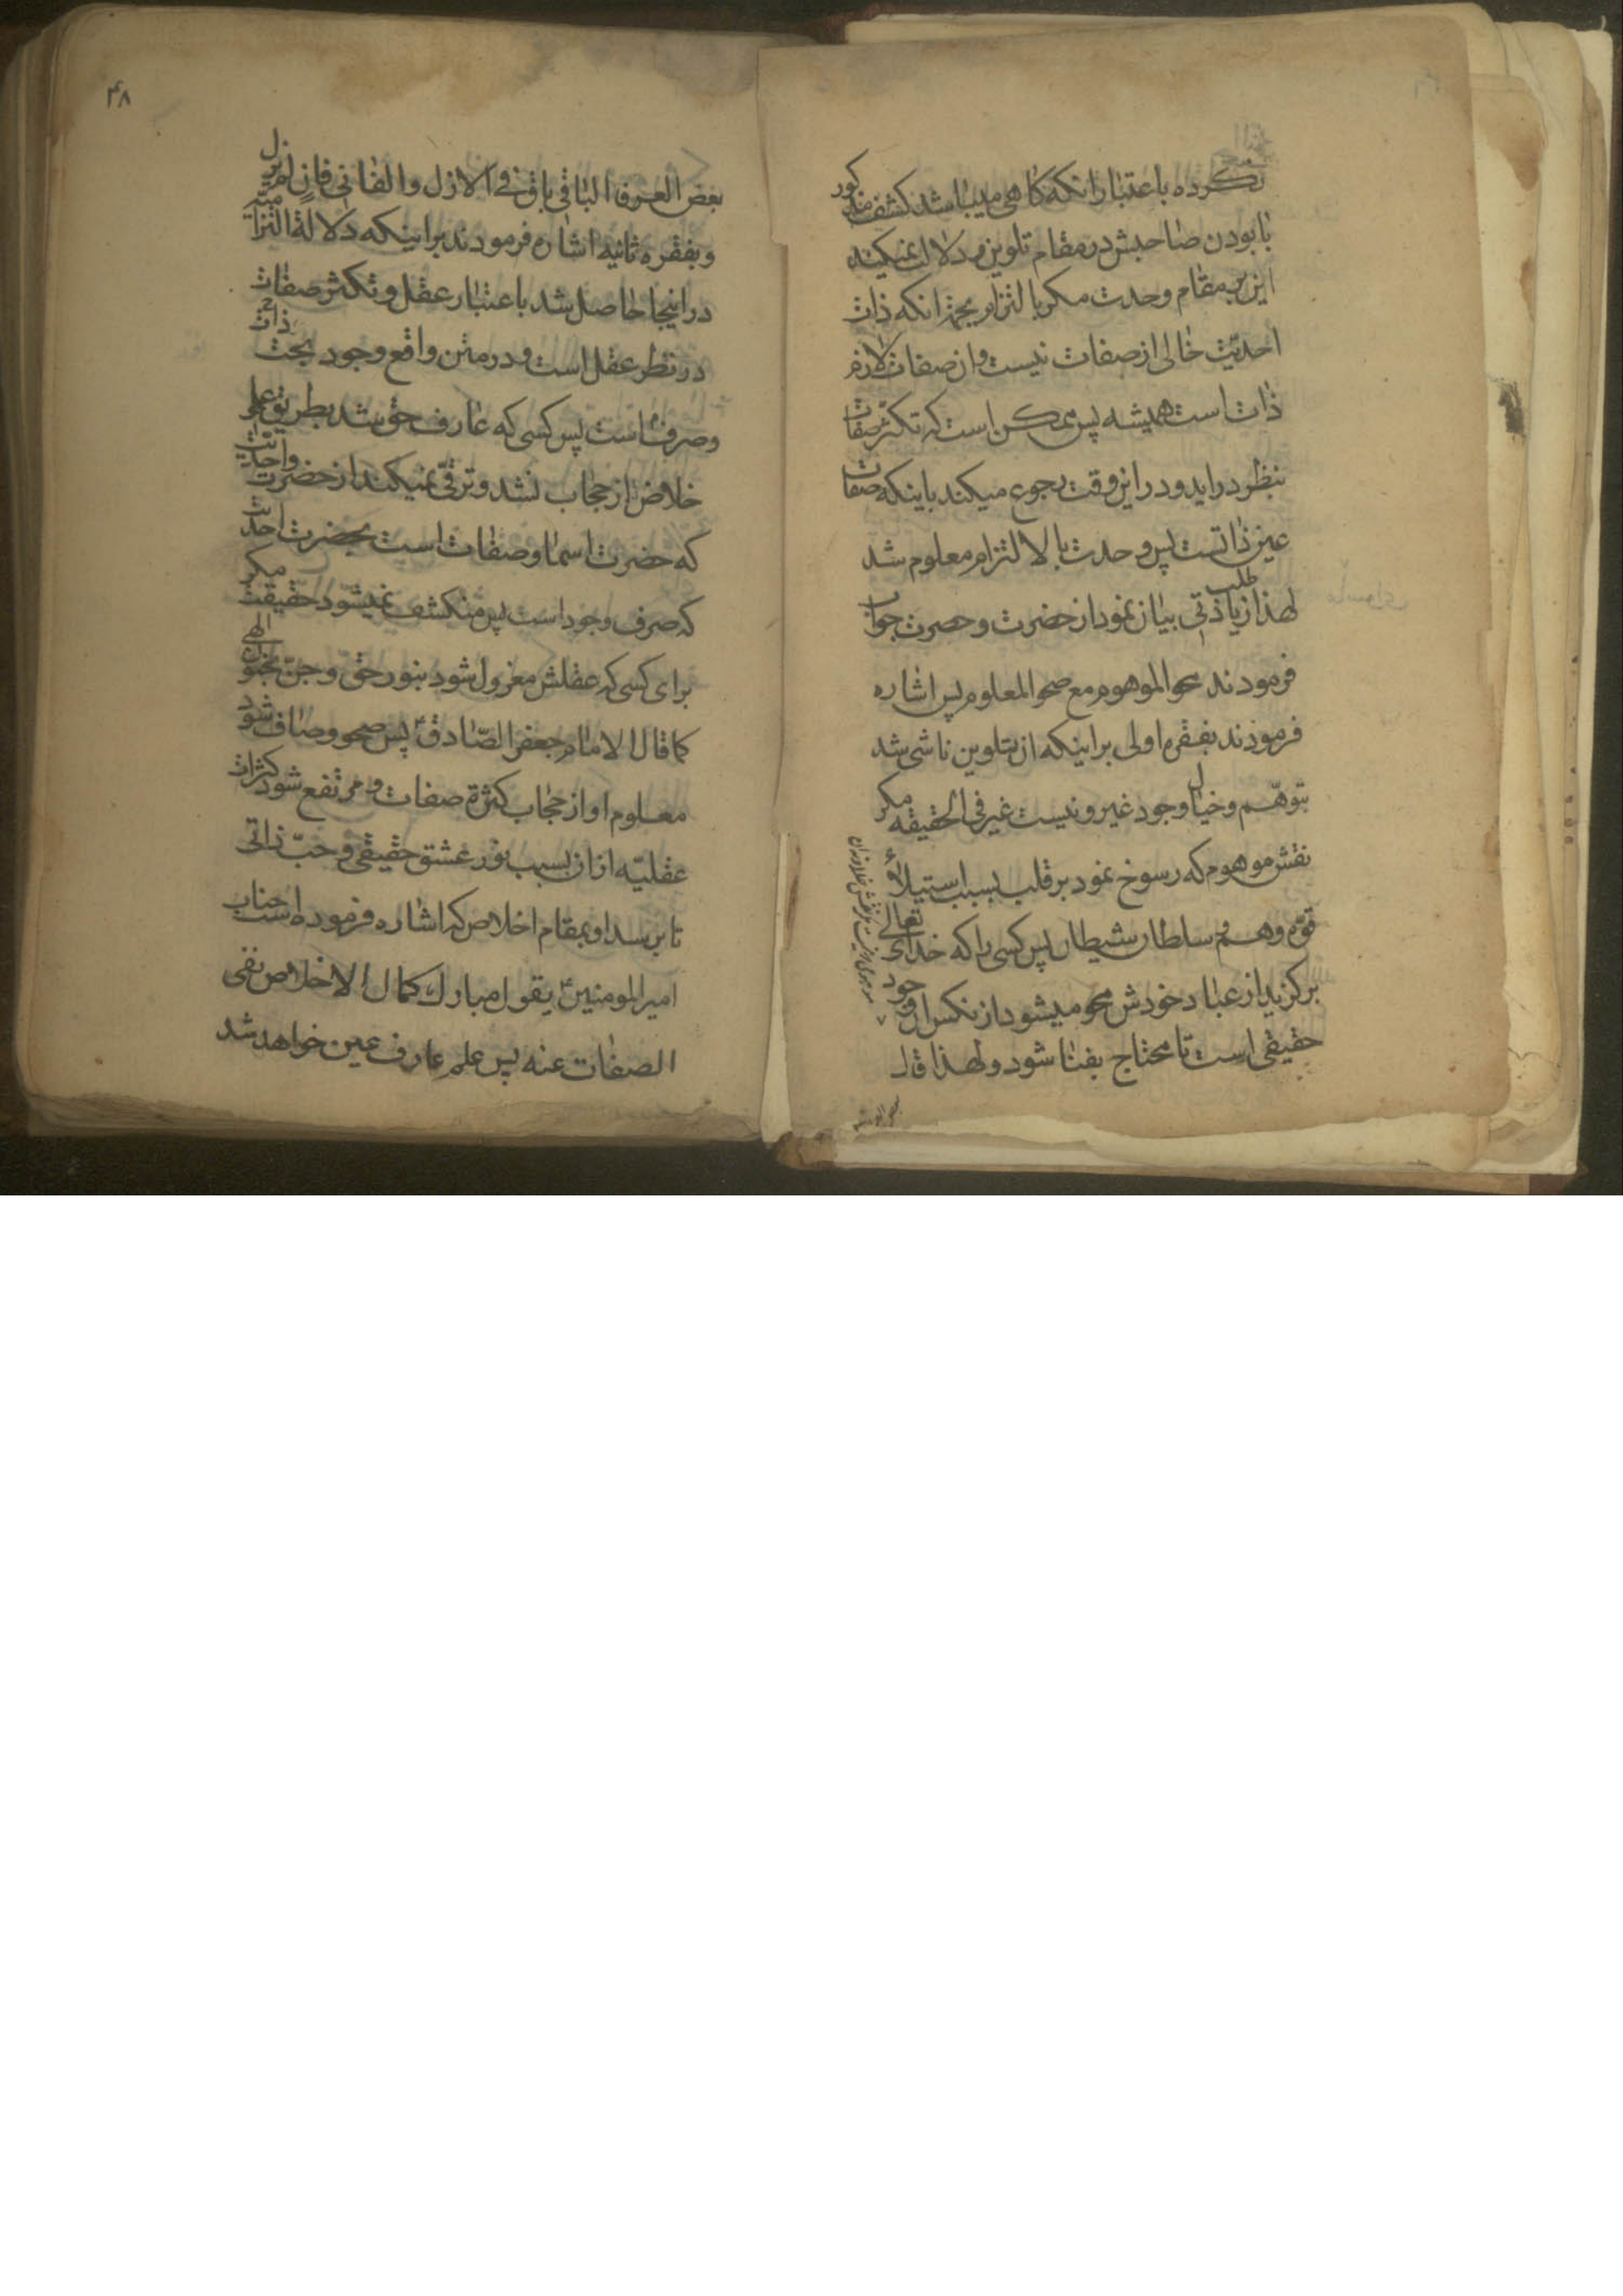 نکرده باعتبار انکه کاهی میباشد کشف مذکور
با بودن صاحبش در مقام تلوین و دلالت نمیکند
این بر مقام وحدت مکر بالتزام بجهة انکه ذات
احدیّت خالی از صفات نیست و ان صفات لازم
ذات است همیشه پس ممکن است که تکثّر صفات
بنظر دراید و در این وقت رجوع میکند باینکه صفات
عین ذاتست پس وحدت بالالتزام معلوم شد
لهذا زیادتی بیان نمود از حضرت و حضرت جواب
طلب
فرمودند محو الموهوم مع صحو المعلوم پس اشاره
فرمودند بفقره اولی بر اینکه از تلوین ناشی شد
توهّم و خیال وجود غیر و نیست غیر فی الحقیقه مکر
نقش موهوم که رسوخ نمود بر قلب بسبب استیلاء
قوّه وهم و سلطان شیطان پس کسی را که خدای تعالی
برکزید از عباد خودش محو میشود از نکس ان وجود
حقیقی است تا محتاج بفنا شود و لهذا قال
۴۸
بعض العرفا الباقی باق فی الازل و الفانی فان لم یزل
و بفقره ثانیه اشاره فرمودند بر اینکه دلالة التزامیّه
در اینجا حاصل شد باعتبار عقل و تکثر صفات
در نظر عقل است و در متن واقع وجود بحت ذات
و صرف است پس کسی که عارف حق شد بطریق علم
خلاص از حجاب نشد و ترقّی نمیکند از حضرت واحدیّت
که حضرت اسما و صفات است بحضرت احدیّت
که صرف وجود است پس منکشف نمیشود حقیقت مکر
برای کسی که عقلش معزول شود بنور حقّ و جنّ بجنون الهی
کما قال الامام جعفر الصّادقؑ پس صحو و صاف شود
معلوم او از حجاب کثرة صفات و مرتفع شود کثرات
عقلیّه از ان بسبب نور عشق حقیقی و حبّ ذاتی
تا برسد او بمقام اخلاص که اشاره فرموده است جناب
امیر المومنینؑ بقول مبارک کمال الاخلاص نفی
الصفات عنه پس علم عارف عین خواهد شد